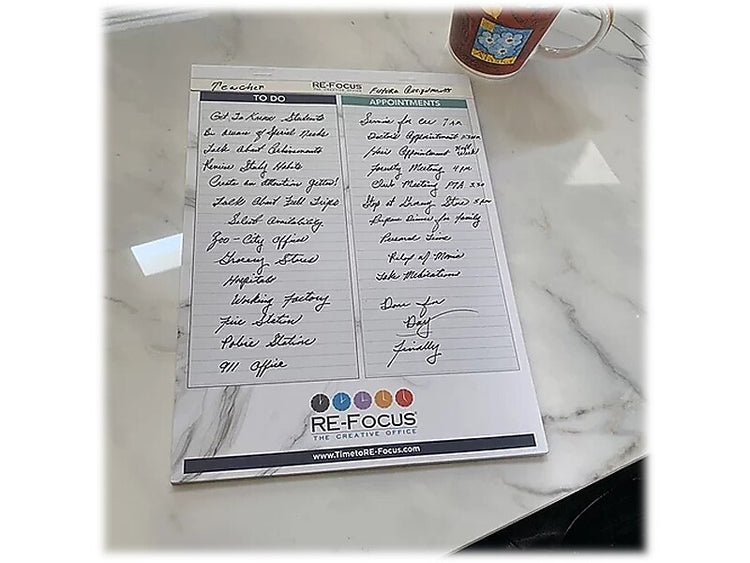 Teacher
RE-FOCUS
THE CREATIVE OFFICE
Future Assignments
TO DO
Get To Know Students
Be Aware of Special Needs
Talk About Achievements
Review Study Habits
Create an attention getter!
Talk About Field Trips
Select Availability
Zoo - City Office
Grocery Stores
Hospitals
Working Factory
Fire Station
Police Station
911 Office
APPOINTMENTS
Service for car 7 am
Doctor's Appointment
Hair Appointment next week
Faculty Meeting 4 pm
Club Meeting PTA 5:30
Stop at Grocery Store
Prepare Dinner for family
Personal Time
Relax w/ Movie
Take Medications
Done for
Day
Finally
RE-FOCUS
THE CREATIVE OFFICE
www.TimetoRE-Focus.com